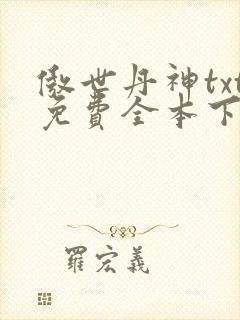 傲世丹神txt
免費全本下
羅宏義